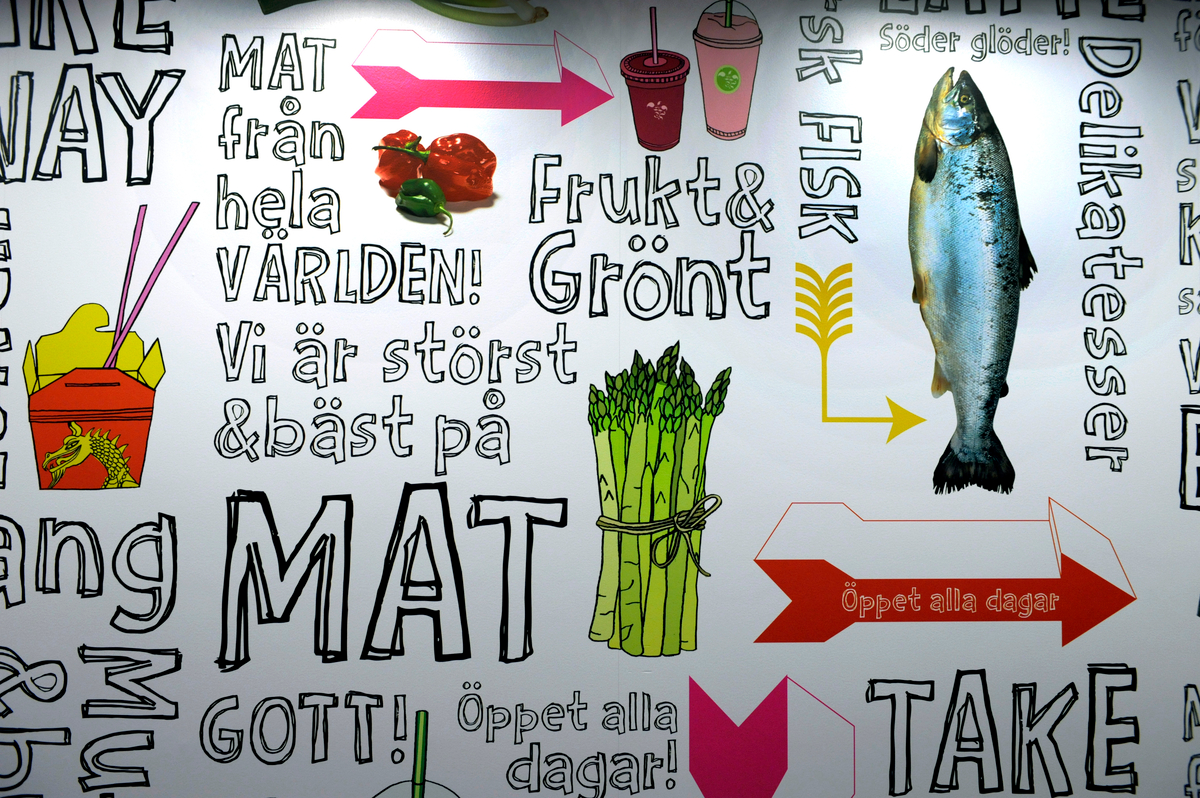 WAY
MAT
från
hela
VÄRLDEN!
Vi är störst
&bäst på
MAT
GOTT!
Öppet alla
dagar!
Frukt&
Grönt
FISK
Söder glöder!
Delikatesser
Öppet alla dagar
TAKE
ang
Mu